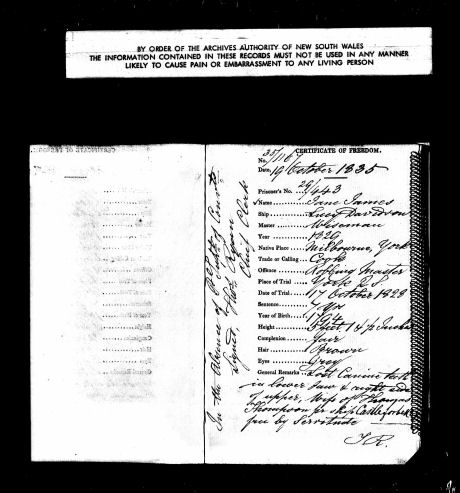 BY ORDER OF THE ARCHIVES AUTHORITY OF NEW SOUTH WALES
THE INFORMATION CONTAINED IN THESE RECORDS MUST NOT BE USED IN ANY MANNER
LIKELY TO CAUSE PAIN OR EMBARRASSMENT TO ANY LIVING PERSON
CERTIFICATE OF FREEDOM.
No. 35/1167
Date, 19 October 1835
Prisoner's No. 29/443
Name Jane James
Ship Lucy Davidson
Master Wiseman
Year 1829
Native Place Milbourne, York
Trade or Calling Cook
Offence Robbing Master
Place of Trial York
Date of Trial 17 October 1828
Sentence 7 Yrs
Year of Birth 1794
Height 5 feet 1 1/2 Inches
Complexion
Hair Brown
Eyes Grey
General Remarks Lost Canine tooth
in lower Jaw & right side
of upper, Wife of Thomas
Thompson pr ship Castle Forbes
free by Servitude
T.R.
In the Absence of
Signed, Thos. Ryan
Chief Clerk